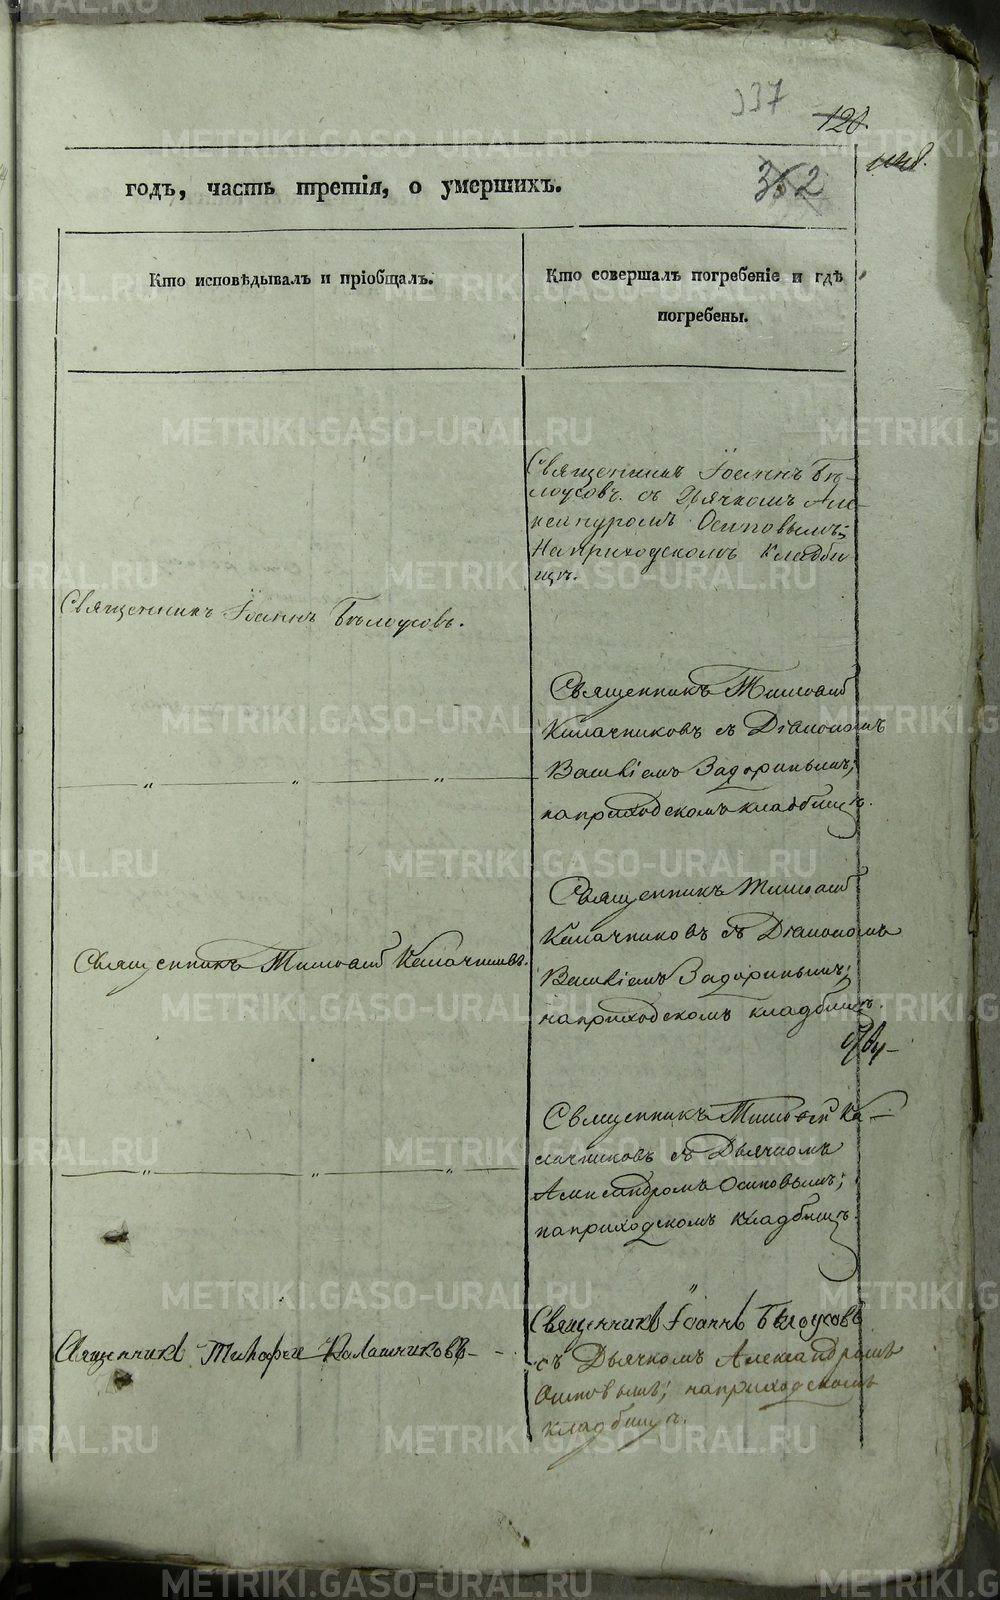 337
120.
годъ, часть третія, о умершихъ.
362
Кто исповѣдывалъ и пріобщалъ.
Кто совершалъ погребеніе и гдѣ
погребены.
Священникъ Іоаннъ Бѣ-
лоусовъ. съ Дьячкомъ Але-
Осиповымъ;
На приходскомъ Кладби-
щѣ.
Священникъ Іоаннъ Бѣлоусовъ.
Священникъ Тимофей
Калачниковъ съ Діакономъ
Задоринымъ;
на приходскомъ кладбищѣ.
" " "
Священникъ Тимофей
Калачниковъ съ Діакономъ
Задоринымъ;
на приходскомъ кладбищѣ
Священникъ Тимофей Калачниковъ.
Священникъ Тимофей Ка-
лачниковъ съ Дьячкомъ
Александромъ Осиповымъ;
на приходскомъ кладбищѣ.
" " "
Священникъ Іоаннъ Бѣлоусовъ
съ Дьячкомъ Александромъ
Осиповымъ; на приходскомъ
кладбищѣ.
Священникъ Тимофей Калашниковъ
METRIKI.GASO-URAL.RU